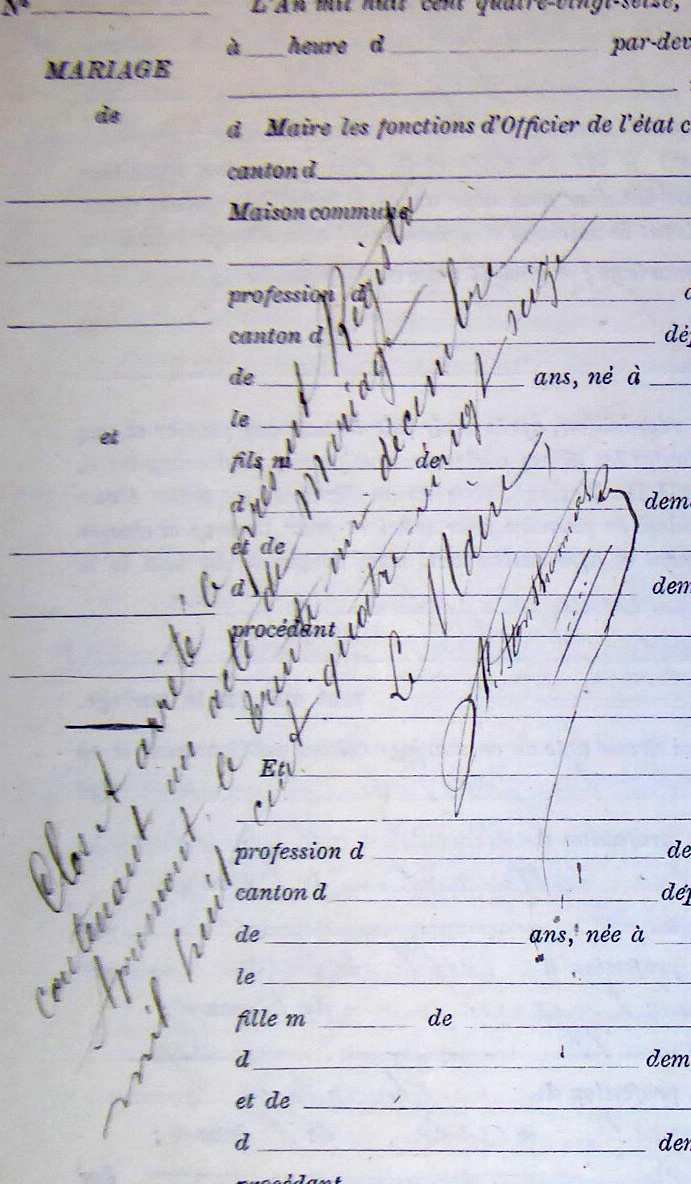 Nº
L'An mil huit cent quatre-vingt-seize,
à heure d par-dev
MARIAGE
de
d Maire les fonctions d'Officier de l'état c
canton d
Maison commune
profession d
canton d dép
de ans, né à
le
et
fils m de
d dem
et de
d dem
procédant
Et
profession d de
canton d dép
de ans, née à
le
fille m de
d dem
et de
d dem
procédant
Clos et arrêté le présent Registre
contenant un acte de Mariage
le trente un décembre
mil huit cent quatre vingt seize
Le Maire,